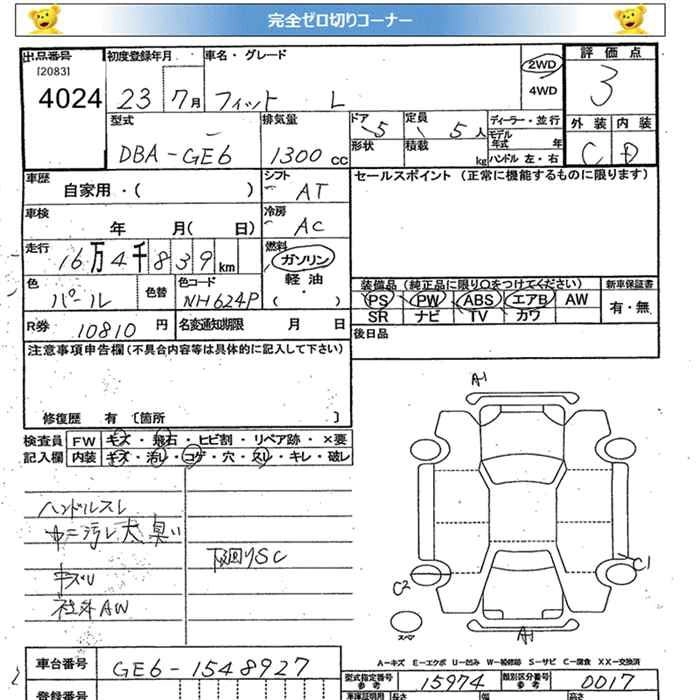 完全ゼロ切りコーナー
出品番号 初度登録年月 車名・グレード 2WD 評価点
[2083]
4024 23 7月 フィット L 4WD 3
型式 排気量 ドア 5 定員 5人 ディーラー・並行 外装 内装
DBA-GE6 1300cc 形状 積載 kg モデル年式 年 C D
ハンドル 左・右
車歴 自家用・( ) シフト AT セールスポイント (正常に機能するものに限ります)
車検 年 月( 日) 冷房 AC
走行 16万4千839km 燃料 ガソリン
軽油
( ・ )
色 パール 色替 色コード NH624P
装備品 (純正品に限り○をつけてください) 新車保証書
PS PW ABS エアB AW 有・無
SR ナビ TV カワ
R券 10810円 名変通知期限 月 日 後日品
注意事項申告欄 (不具合内容等は具体的に記入して下さい)
修復歴 有 〔箇所 〕
検査員記入欄 FW キズ・飛石・ヒビ割・リペア跡・×要
内装 キズ・汚レ・コゲ・穴・スレ・キレ・破レ
A-1
ハンドルスレ
内ニ汚レ大 臭い
下廻りSC
キズU
社外AW
C1
C2
スペア
A-1
A-キズ E-エクボ U-凹み W-補修跡 S-サビ C-腐食 XX-交換済
車台番号 GE6-1548927 型式指定番号 参考 15974 類別区分番号 参考 0017
登録番号 車庫証明用 長さ 幅 高さ